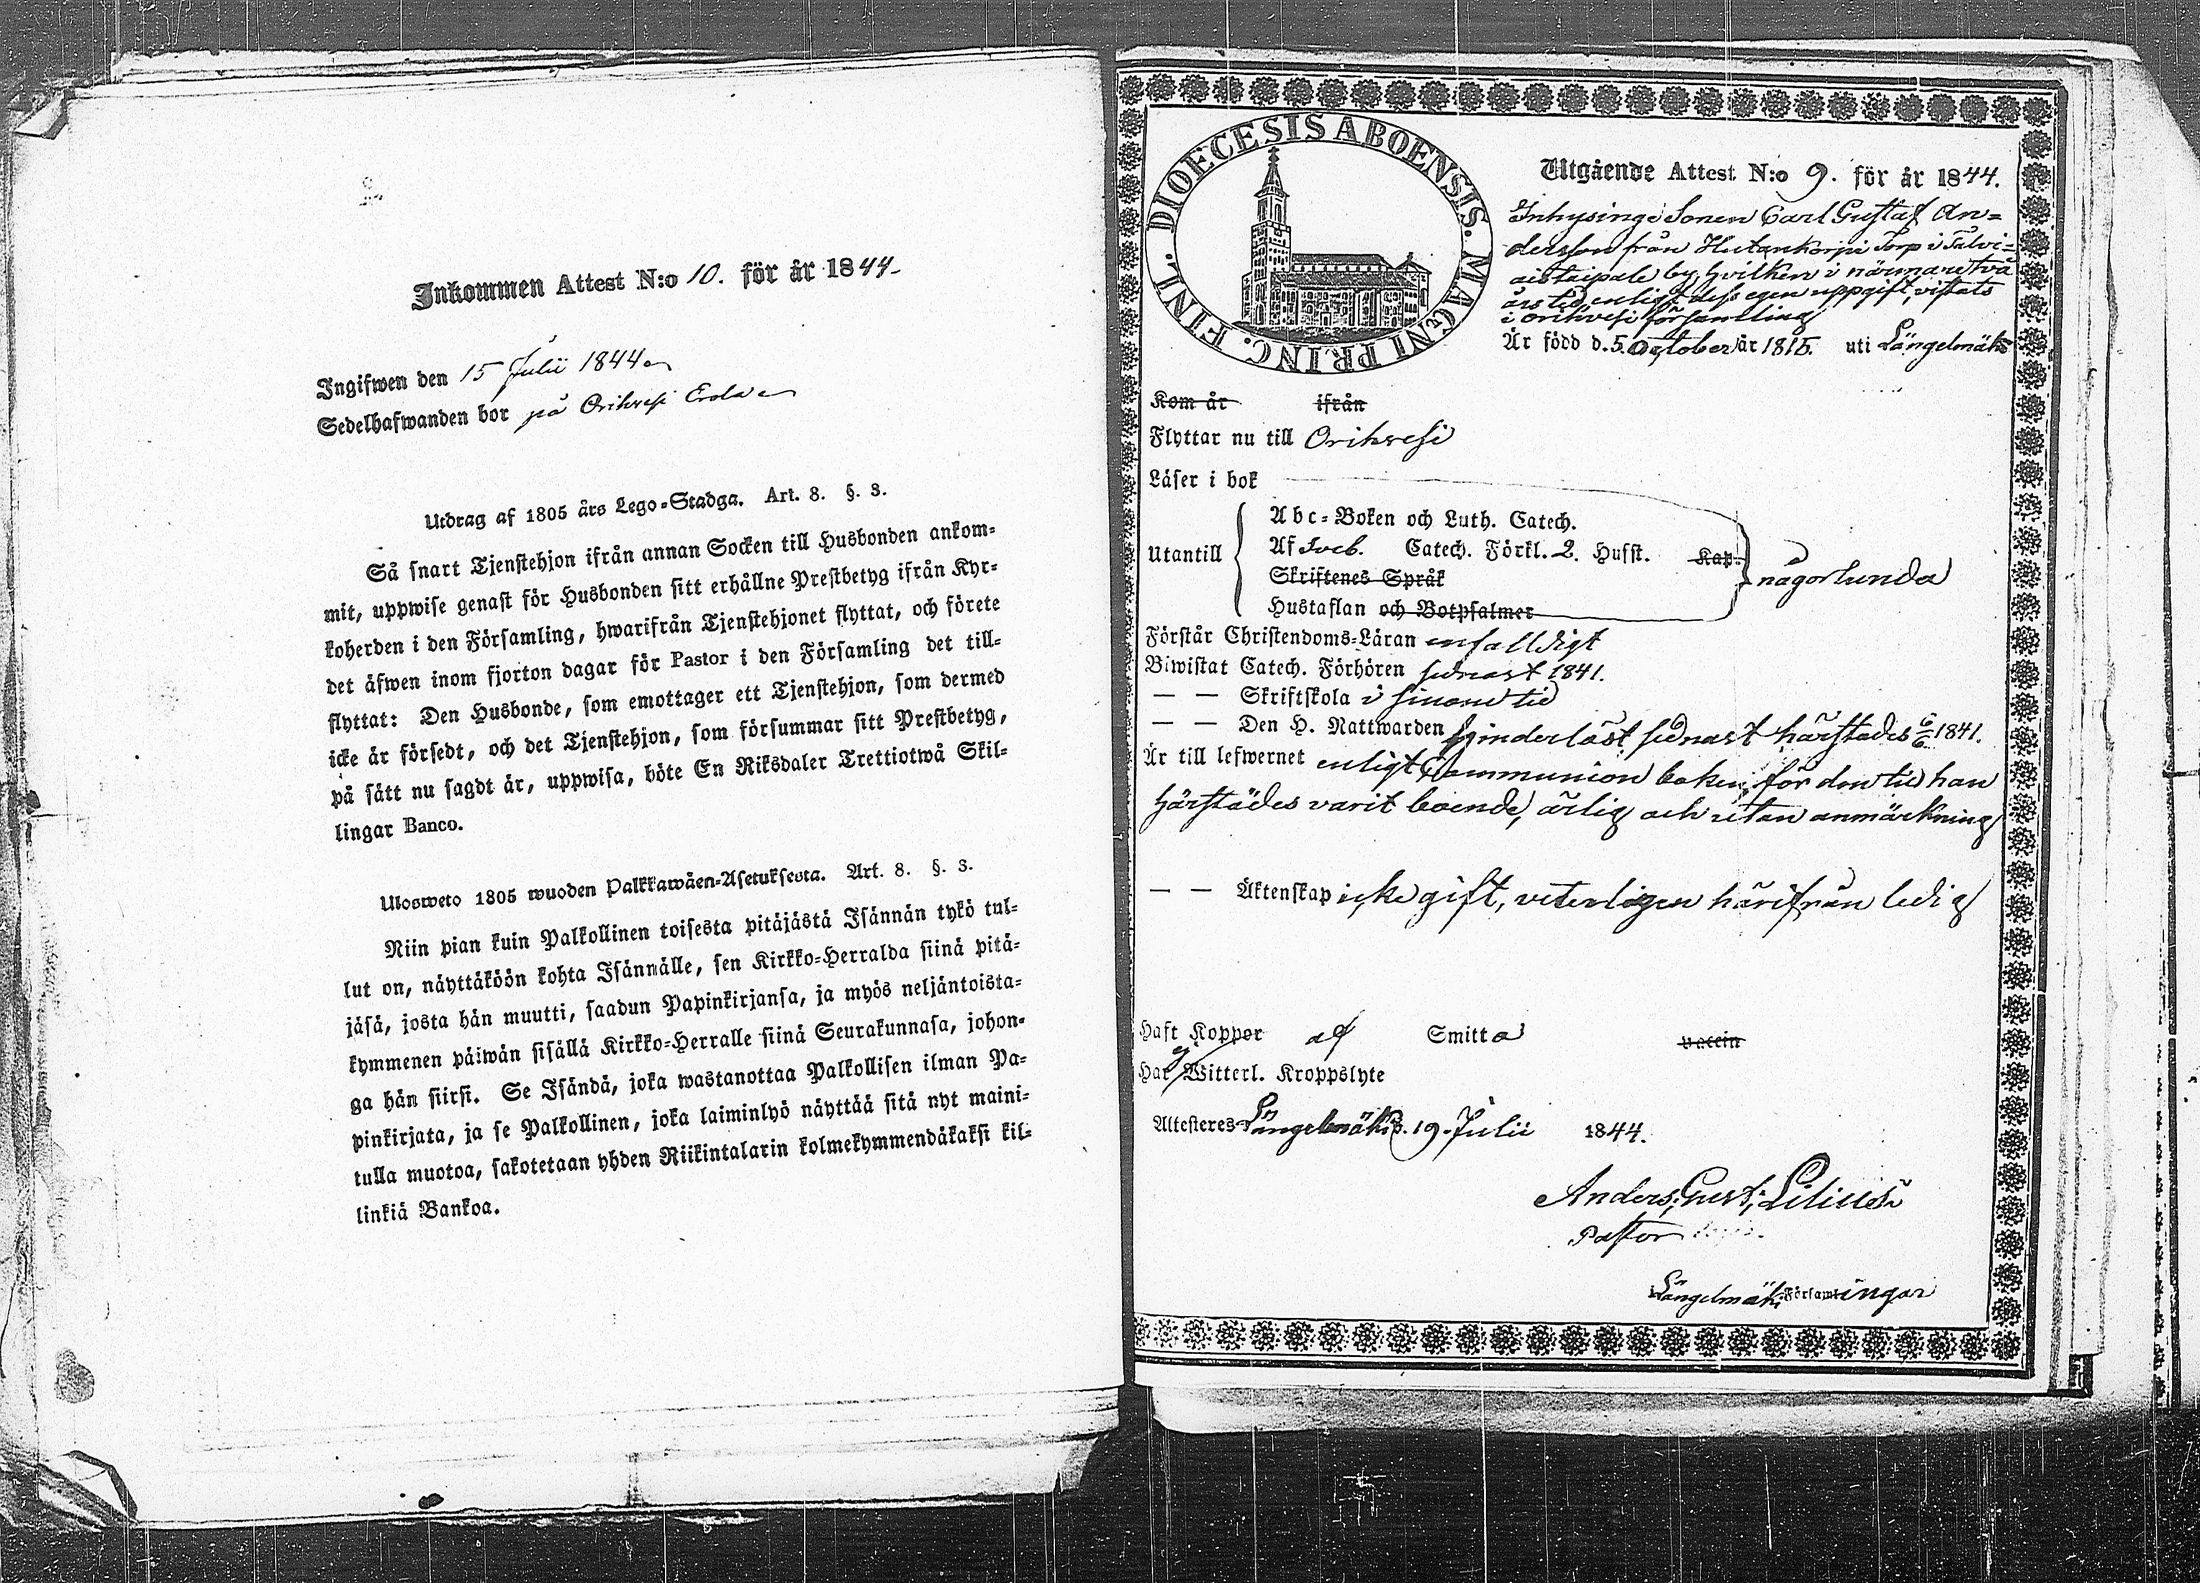 Inkommen Attest N:o 10. för år 1844
Ingifwen den 15 Julii 1844
Sedelhafwanden bor på Orihvesi Erola
Utdrag af 1805 års Lego-Stadga. Art. 8. §. 3.
Så snart Tjenstehjon ifrån annan Socken till Husbonden ankom-
mit, uppwise genast för Husbonden sitt erhållne Prestbetyg ifrån Kyr-
koherden i den Församling, hwarifrån Tjenstehjonet flyttat, och förete
det äfwen inom fjorton dagar för Pastor i den Församling det till-
flyttat: Den Husbonde, som emottager ett Tjenstehjon, som dermed
icke är försedt, och det Tjenstehjon, som försummar sitt Prestbetyg,
på sätt nu sagdt är, uppwisa, böte En Riksdaler Trettiotwå Skil-
lingar Banco.
Ulosweto 1805 wuoden Palkkawäen-Asetuksesta. Art. 8. §. 3.
Niin pian kuin Palkollinen toisesta pitäjästä Isännän tykö tul-
lut on, näyttäköön kohta Isännälle, sen Kirkko-Herralda siinä pitä-
jäsä, josta hän muutti, saadun Papinkirjansa, ja myös neljäntoista-
kymmenen päiwän sisällä Kirkko-Herralle siinä Seurakunnasa, johon-
ga hän siirsi. Se Isändä, joka wastanottaa Palkollisen ilman Pa-
pinkirjata, ja se Palkollinen, joka laiminlyö näyttää sitä nyt maini-
tulla muotoa, sakotetaan yhden Riikintalarin kolmekymmendäkaksi kil-
linkiä Bankoa.
DIOECESIS ABOENSIS. MAGNI PRINC. FINL.
Utgående Attest N:o 9. för år 1844.
Inhysinge Sonen Carl Gustaf An=
dersson från Hutankorpi Torp i Talvi=
aistaipale by, hvilken i närmare två
års tid, enligt dess egen uppgift, vistats
i Orihvesi församling
Är född d. 5. October år 1815. uti Längelmäki
Kom år ifrån
Flyttar nu till Orihvesi
Läser i bok
Utantill
Abc-Boken och Luth. Catech.
Af Sveb. Catech. Förkl. 2. Husst. Kap.
Skriftenes Språk
Hustaflan och Botpsalmer
någorlunda
Förstår Christendoms-Läran enfalldigt
Biwistat Catech. Förhören sednast 1841.
— — Skriftskola i sinom tid
— — Den H. Nattwarden hinderlöst sednast härstädes 6/6 1841.
Är till lefwernet enligt Communion boken, för den tid han
härstädes varit boende, ärlig och utan anmärkning
— — Äktenskap icke gift, veterligen härifrån ledig
Haft Koppor af Smitta vaccin
Har ej Witterl. Kroppslyte
Attesteres Längelmäki d. 19. Julii 1844.
Anders Gust. Lilius
Pastor
Längelmäki Församlingar